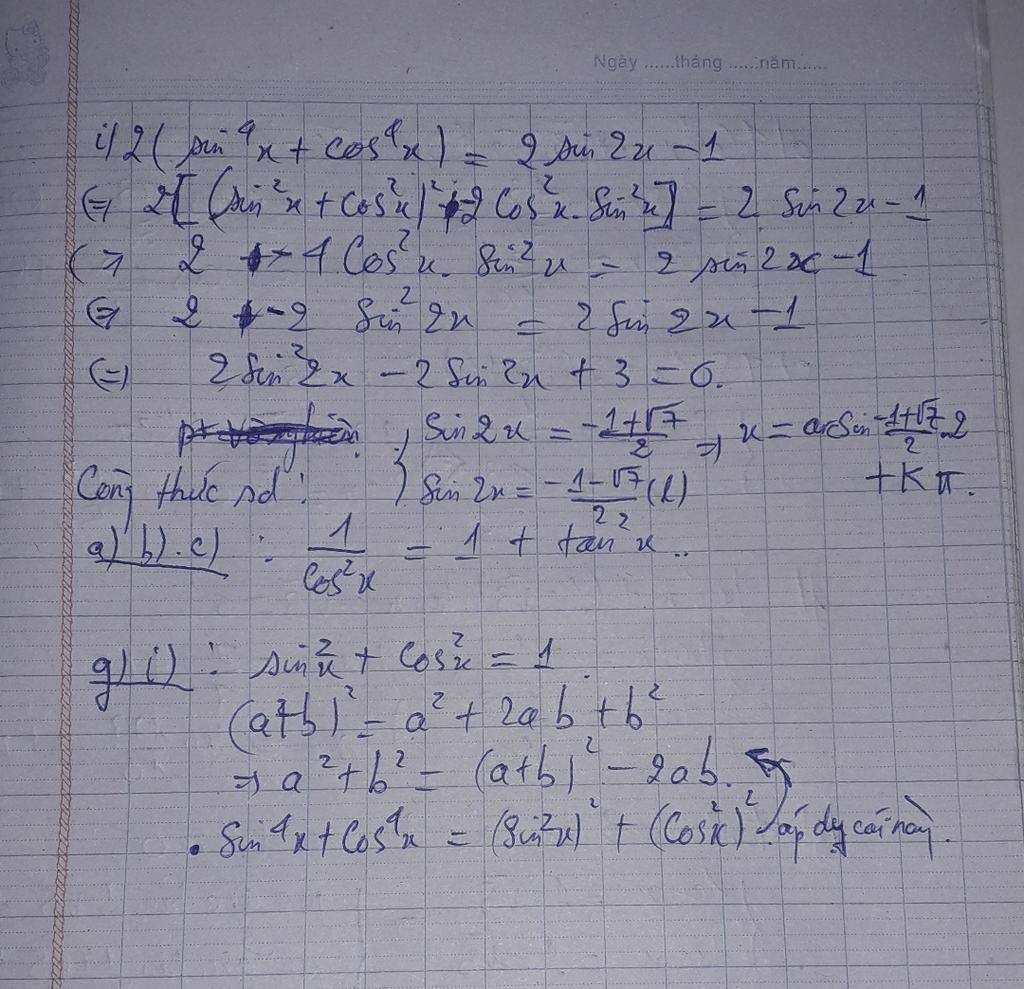 Ngày ......tháng ......năm......
i) 2(sin⁴x + cos⁴x) = 2 sin 2x - 1
(=) 2[(sin²x + cos²x)² - 2 Cos²x. Sin²x] = 2 Sin 2x - 1
(=) 2 - 4 Cos²x. Sin²x = 2 sin 2x - 1
(=) 2 - 2 Sin² 2x = 2 Sin 2x - 1
(=) 2 Sin² 2x - 2 Sin 2x + 3 = 0.
Sin 2x = (-1+√7)/2 => x = arcSin (-1+√7)/2 .2
Công thức sd: Sin 2x = (-1-√7)/2 (l) + Kπ.
a) b). c) : 1/Cos²x = 1 + tan²x ..
g) i) : sin²x + Cos²x = 1
(a+b)² = a² + 2ab + b²
=> a² + b² = (a+b)² - 2ab.
. Sin⁴x + Cos⁴x = (Sin²x)² + (Cos²x)² áp dg cái này.